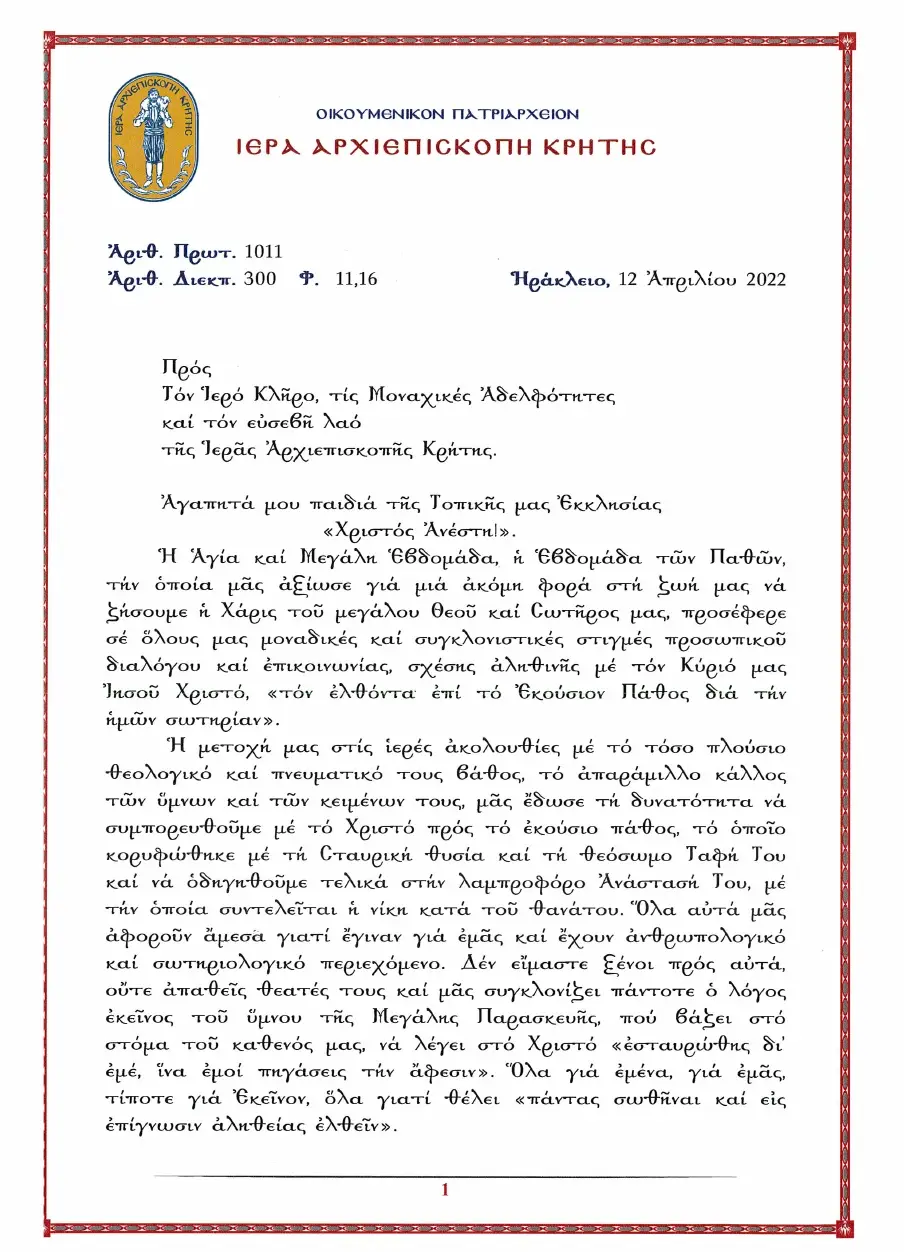 ΙΕΡΑ ΑΡΧΙΕΠΙΣΚΟΠΗ ΚΡΗΤΗΣ
ΟΙΚΟΥΜΕΝΙΚΟΝ ΠΑΤΡΙΑΡΧΕΙΟΝ
ΙΕΡΑ ΑΡΧΙΕΠΙΣΚΟΠΗ ΚΡΗΤΗΣ
Ἀριθ. Πρωτ. 1011
Ἀριθ. Διεκπ. 300 Φ. 11,16 Ἡράκλειο, 12 Ἀπριλίου 2022
Πρός
Τόν Ἱερό Κλῆρο, τίς Μοναχικές Ἀδελφότητες
καί τόν εὐσεβῆ λαό
τῆς Ἱερᾶς Ἀρχιεπισκοπῆς Κρήτης.
Ἀγαπητά μου παιδιά τῆς Τοπικῆς μας Ἐκκλησίας
«Χριστός Ἀνέστη!».
Ἡ Ἁγία καί Μεγάλη Ἑβδομάδα, ἡ Ἑβδομάδα τῶν Παθῶν,
τήν ὁποία μᾶς ἀξίωσε γιά μιά ἀκόμη φορά στή ζωή μας νά
ζήσουμε ἡ Χάρις τοῦ μεγάλου Θεοῦ καί Σωτῆρος μας, προσέφερε
σέ ὅλους μας μοναδικές καί συγκλονιστικές στιγμές προσωπικοῦ
διαλόγου καί ἐπικοινωνίας, σχέσης ἀληθινῆς μέ τόν Κύριό μας
Ἰησοῦ Χριστό, «τόν ἐλθόντα ἐπί τό Ἑκούσιον Πάθος διά τήν
ἡμῶν σωτηρίαν».
Ἡ μετοχή μας στίς ἱερές ἀκολουθίες μέ τό τόσο πλούσιο
θεολογικό καί πνευματικό τους βάθος, τό ἀπαράμιλλο κάλλος
τῶν ὕμνων καί τῶν κειμένων τους, μᾶς ἔδωσε τή δυνατότητα νά
συμπορευθοῦμε μέ τό Χριστό πρός τό ἑκούσιο πάθος, τό ὁποῖο
κορυφώθηκε μέ τή Σταυρική θυσία καί τή θεόσωμο Ταφή Του
καί νά ὁδηγηθοῦμε τελικά στήν λαμπροφόρο Ἀνάστασή Του, μέ
τήν ὁποία συντελεῖται ἡ νίκη κατά τοῦ θανάτου. Ὅλα αὐτά μᾶς
ἀφοροῦν ἄμεσα γιατί ἔγιναν γιά ἐμᾶς καί ἔχουν ἀνθρωπολογικό
καί σωτηριολογικό περιεχόμενο. Δέν εἴμαστε ξένοι πρός αὐτά,
οὔτε ἀπαθεῖς θεατές τους καί μᾶς συγκλονίζει πάντοτε ὁ λόγος
ἐκεῖνος τοῦ ὕμνου τῆς Μεγάλης Παρασκευῆς, πού βάζει στό
στόμα τοῦ καθενός μας, νά λέγει στό Χριστό «ἐσταυρώθης δι'
ἐμέ, ἵνα ἐμοί πηγάσεις τήν ἄφεσιν». Ὅλα γιά ἐμένα, γιά ἐμᾶς,
τίποτε γιά Ἐκεῖνον, ὅλα γιατί θέλει «πάντας σωθῆναι καί εἰς
ἐπίγνωσιν ἀληθείας ἐλθεῖν».
1